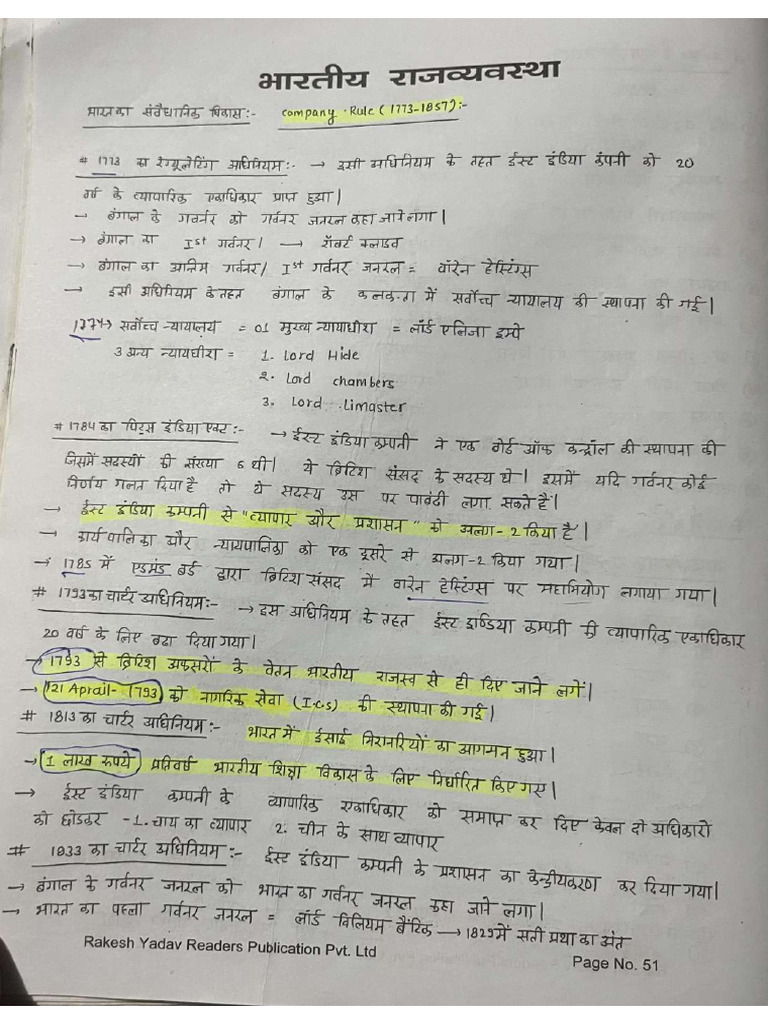 भारतीय राजव्यवस्था
भारत का संवैधानिक विकास:- Company Rule (1773-1857):-
# 1773 का रेग्यूलेटिंग अधिनियम:- → इसी अधिनियम के तहत ईस्ट इंडिया कंपनी को 20
वर्ष के व्यापारिक एकाधिकार प्राप्त हुआ।
→ बंगाल के गवर्नर को गर्वनर जनरल कहा जाने लगा।
→ बंगाल का Ist गर्वनर। → रॉबर्ट क्लाइव
→ बंगाल का अन्तिम गर्वनर/ Ist गर्वनर जनरल = वॉरेन हेस्टिंग्स
→ इसी अधिनियम के तहत बंगाल के कलकत्ता में सर्वोच्च न्यायालय की स्थापना की गई।
1774→ सर्वोच्च न्यायालय = 01 मुख्य न्यायाधीश = लॉर्ड एलिजा इम्पे
3 अन्य न्यायधीश = 1. Lord Hide
2. Lord chambers
3. Lord Limaster
# 1784 का पिट्स इंडिया एक्ट:- → ईस्ट इंडिया कम्पनी ने एक बोर्ड ऑफ कन्ट्रॉल की स्थापना की
जिसमें सदस्यों की संख्या 6 थी। ये ब्रिटिश संसद के सदस्य थे। इसमें यदि गर्वनर कोई
निर्णय गलत दिया है तो ये सदस्य उस पर पाबंदी लगा सकते हैं।
→ ईस्ट इंडिया कम्पनी से "व्यापार और प्रशासन" को अलग-2 किया है।
→ कार्यपालिका और न्यायपालिका को एक दूसरे से अलग-2 किया गया।
→ 1785 में एडमंड बर्ड द्वारा ब्रिटिश संसद में वारेन हेस्टिंग्स पर महाभियोग लगाया गया।
# 1793 का चार्टर अधिनियम:- → इस अधिनियम के तहत ईस्ट इण्डिया कम्पनी की व्यापारिक एकाधिकार
20 वर्ष के लिए बढा दिया गया।
→ 1793 से ब्रिटिश अफसरों के वेतन भारतीय राजस्व से ही दिए जाने लगें।
→ 21 Aprail- 1793 को नागरिक सेवा (I.C.S) की स्थापना की गई।
# 1813 का चार्टर अधिनियम:- भारत में ईसाई मिशनरियों का आगमन हुआ।
→ 1 लाख रूपये प्रतिवर्ष भारतीय शिक्षा विकास के लिए निर्धारित किए गए।
→ ईस्ट इंडिया कम्पनी के व्यापारिक एकाधिकार को समाप्त कर दिए केवल दो अधिकारो
को छोडकर - 1. चाय का व्यापार 2. चीन के साथ व्यापार
# 1833 का चार्टर अधिनियम:- ईस्ट इंडिया कम्पनी के प्रशासन का केन्द्रीयकरण कर दिया गया।
→ बंगाल के गर्वनर जनरल को भारत का गर्वनर जनरल कहा जाने लगा।
→ भारत का पहला गर्वनर जनरल = लॉर्ड विलियम बैंटिक → 1829 में सती प्रथा का अंत
Rakesh Yadav Readers Publication Pvt. Ltd
Page No. 51